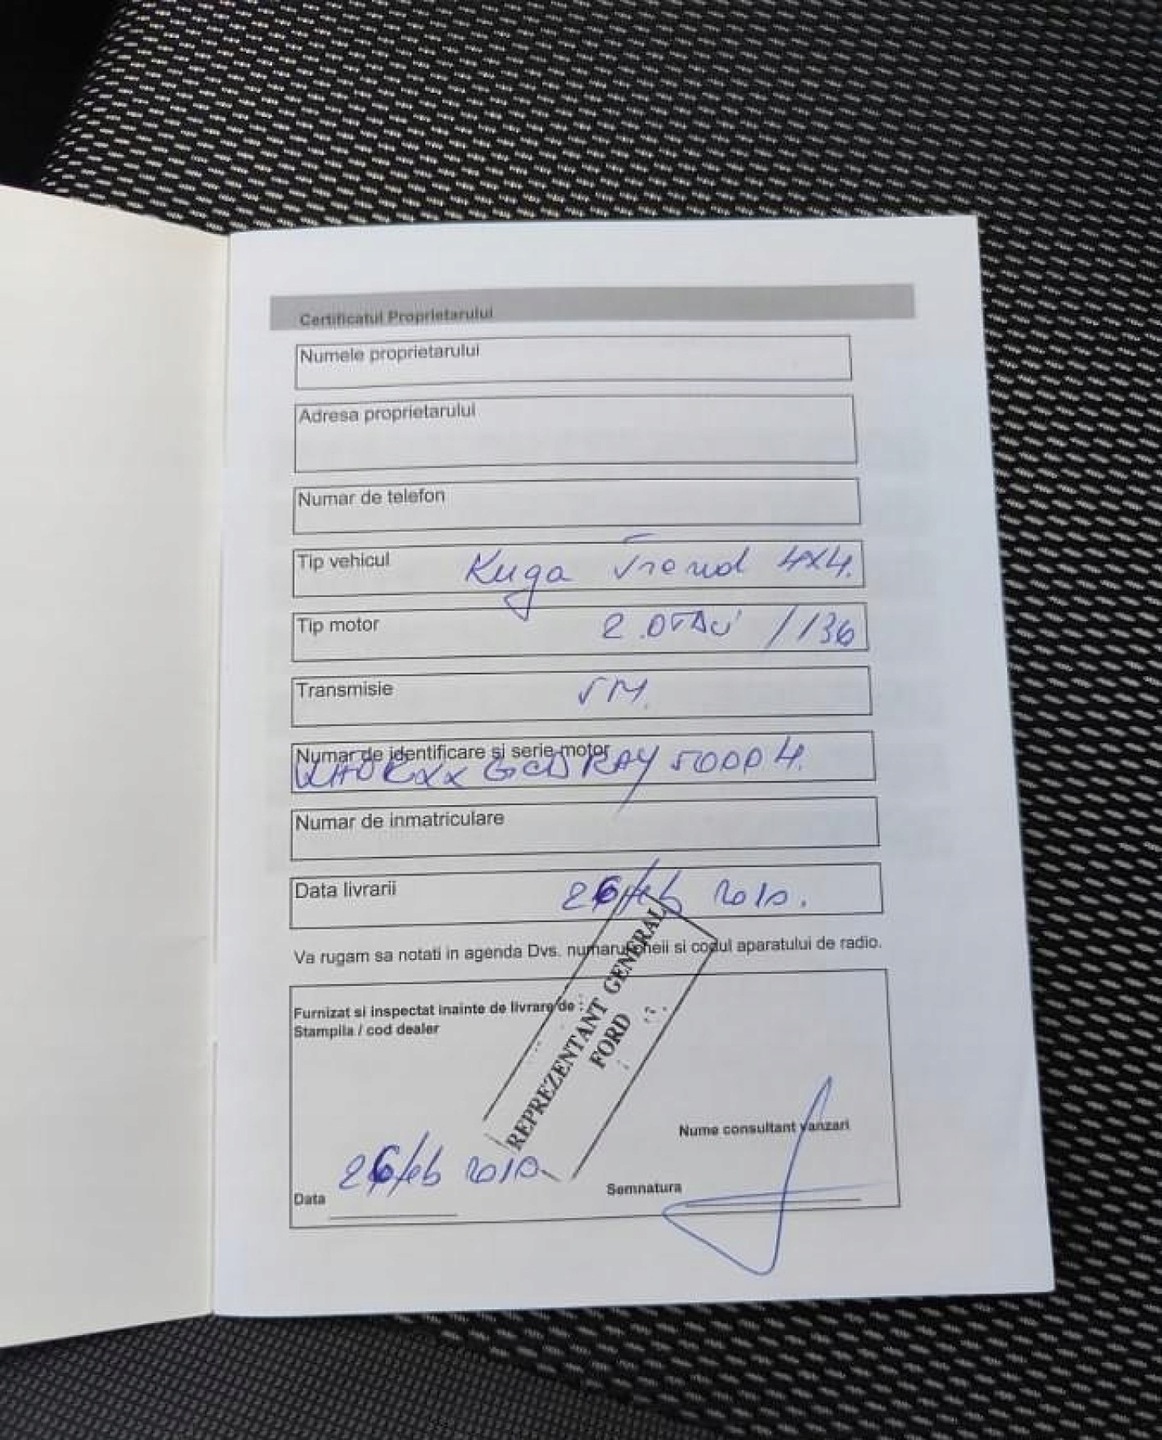 Certificatul Proprietarului
Numele proprietarului
Adresa proprietarului
Numar de telefon
Tip vehicul Kuga Trend 4x4.
Tip motor 2.0TDCi /136
Transmisie
Numar de identificare si serie motor
Numar de inmatriculare
Data livrarii 26/feb 2010.
Va rugam sa notati in agenda Dvs. numarul cheii si codul aparatului de radio.
Furnizat si inspectat inainte de livrare de :
Stampila / cod dealer
REPREZENTANT GENERAL
FORD
Nume consultant vanzari
Data 26/feb 2010
Semnatura